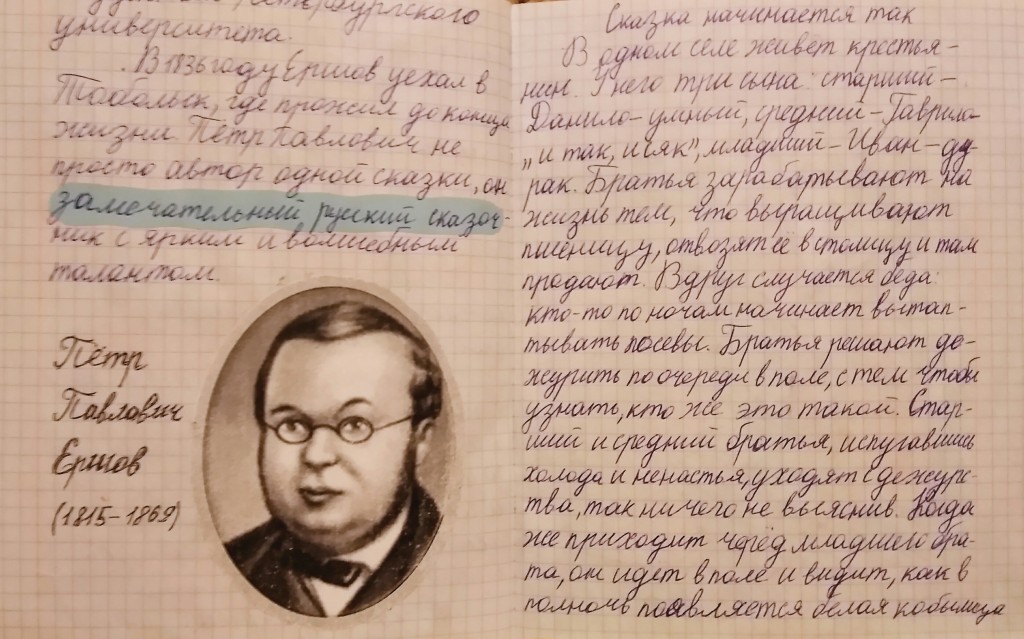 Петербургского
университета.
В 1836 году Ершов уехал в
Тобольск, где прожил до конца
жизни. Пётр Павлович не
просто автор одной сказки, он
замечательный русский сказоч-
ник с ярким и волшебным
талантом.
Пётр
Павлович
Ершов
(1815-1869)
Сказка начинается так
В одном селе живёт крестья-
нин. У него три сына: старший -
Данило - умный, средний - Гаврило
"и так, и сяк", младший - Иван - ду-
рак. Братья зарабатывают на
жизнь тем, что выращивают
пшеницу, отвозят её в столицу и там
продают. Вдруг случается беда:
кто-то по ночам начинает вытап-
тывать посевы. Братья решают де-
журить по очереди в поле, с тем чтобы
узнать, кто же это такой. Стар-
ший и средний братья, испугавшись
холода и ненастья, уходят с дежурс-
тва, так ничего не выяснив. Когда
же приходит черёд младшего бра-
та, он идёт в поле и видит, как в
полночь появляется белая кобылица